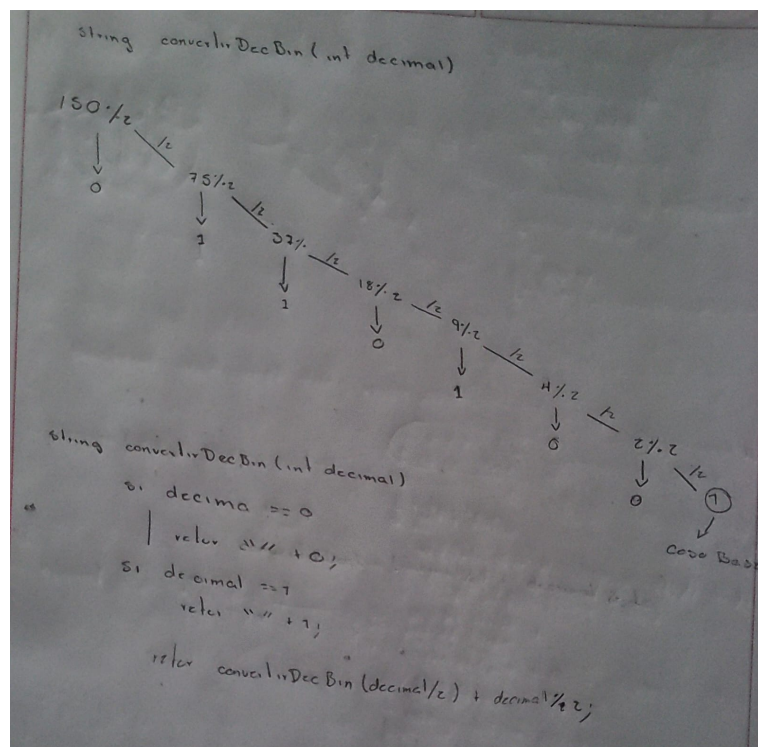 string convertirDecBin(int decimal)
150%2 /2
0
75%2 /2
1
37% /2
1
18%2 /2
0
9%2 /2
1
4%2 /2
0
2%2 /2
0
1
Caso Base
string convertirDecBin(int decimal)
si decima == 0
retor "" + 0;
si decimal ==1
retor "" + 1;
retor convertirDecBin(decimal/2) + decimal%2;